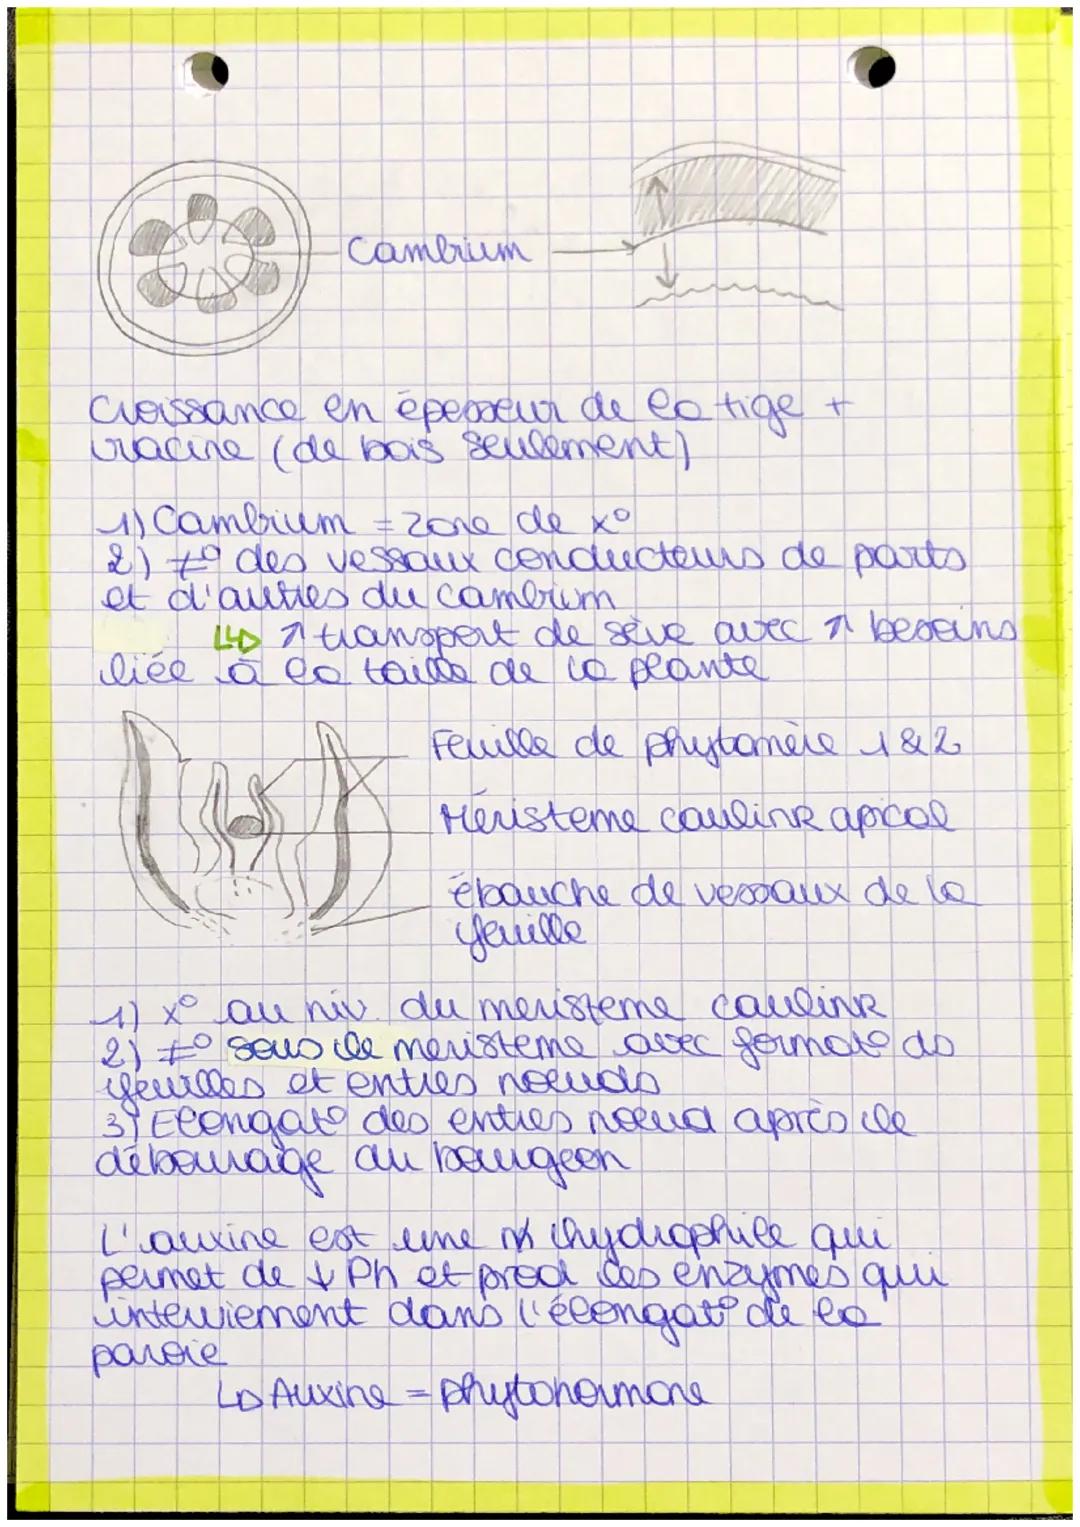 Cambrium
Croissance en épesseur de la tige +
racine (de bois seulement)
1) Cambrium = zone de x°
2) ≠° des vessaux conducteurs de parts
et d'autres du cambrium
↳ ↗ transport de sève avec ↗ besoins
liée à la taille de la plante
Feuille de phytomère 1 & 2
Méristeme caulinR apical
ébauche de vessaux de la
feuille
1) x° au niv. du meristeme caulinR
2) ≠° sous le meristeme avec format° ds
feuilles et entres noeuds
3) Elongat° des entres noeud après le
débourage du bourgeon
L'auxine est une hydrophile qui
permet de ↓ Ph et prod les enzymes qui
interviement dans l'élongat° de la
paroie
↳ Auxine = phytohormone